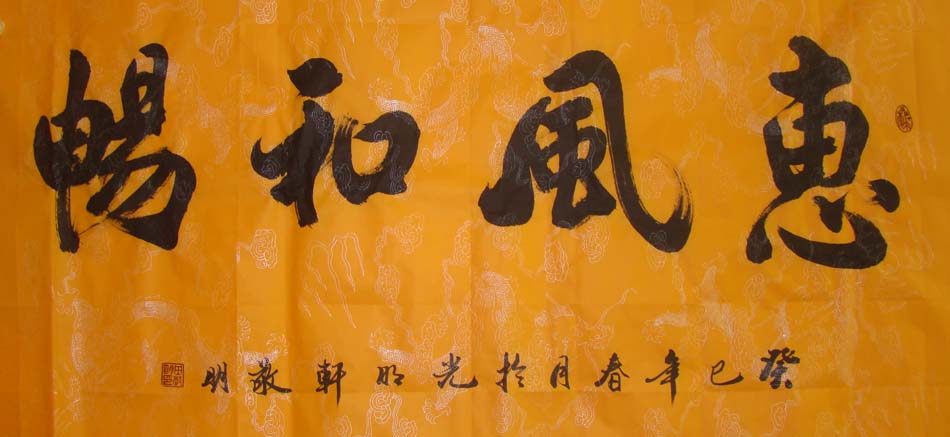 惠風和暢
癸巳年春月於光明軒敬明